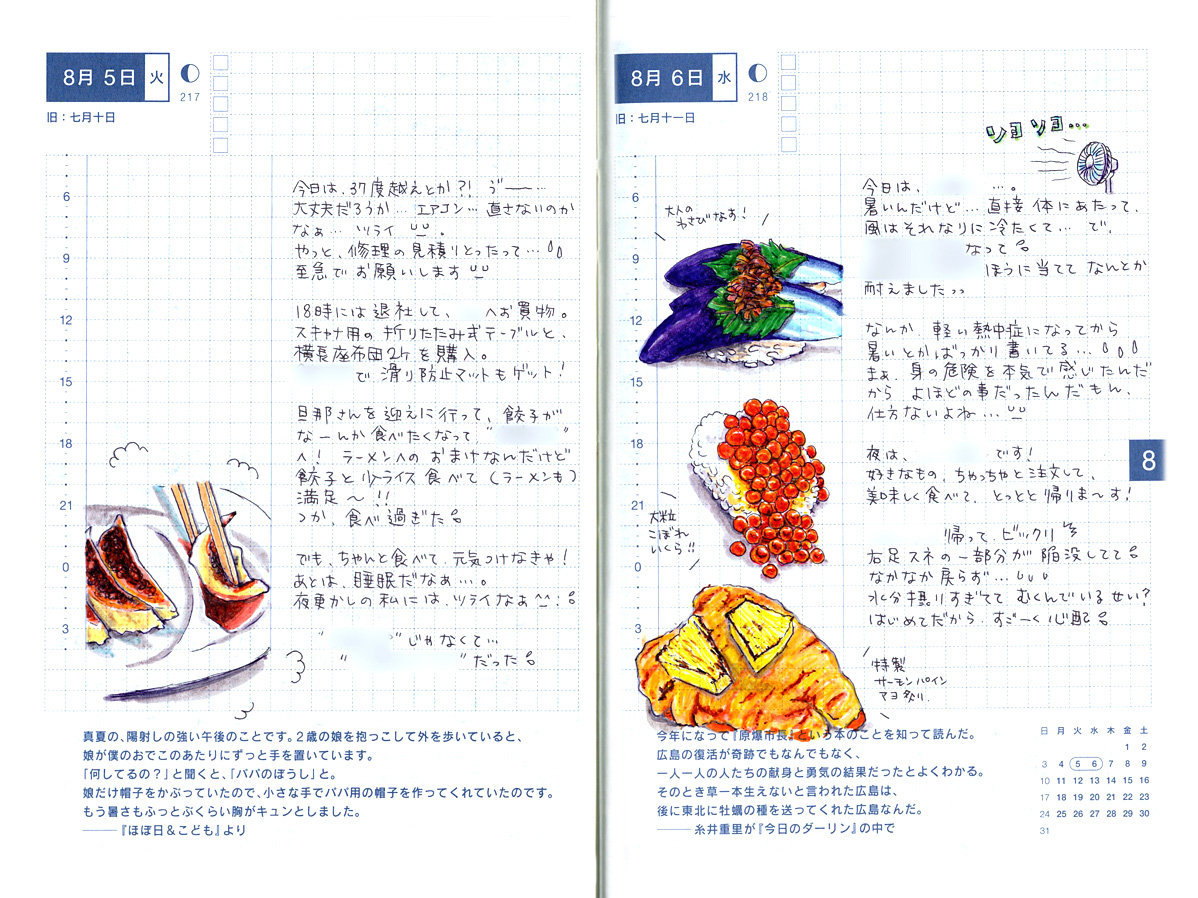 8月 5日 火
217
旧：七月十日
6
9
12
15
18
21
0
3
今日は、37度越えとか?! ゔ——…
大丈夫だろうか… エアコン… 直さないのか
なぁ… ツライ 。
やっと、修理の見積りとったって…
至急で お願いします
18時には 退社して、 へお買物。
スキャナ用の 折りたたみ式テーブルと、
横長座布団2ケ を購入。
で 滑り防止マットもゲット!
旦那さんを 迎えに行って、餃子が
なーんか食べたくなって、" "
へ! ラーメンへの おまけなんだけど
餃子と 小ライス 食べて (ラーメンも)
満足〜 !!
つか、食べ過ぎた
でも、ちゃんと食べて、元気つけなきゃ!
あとは、睡眠だなぁ…。
夜更かしの私には、ツライなぁ^^;
" "じゃなくて…
" "だった
真夏の、陽射しの強い午後のことです。2歳の娘を抱っこして外を歩いていると、
娘が僕のおでこのあたりにずっと手を置いています。
「何してるの？」と聞くと、「パパのぼうし」と。
娘だけ帽子をかぶっていたので、小さな手でパパ用の帽子を作ってくれていたのです。
もう暑さもふっとぶくらい胸がキュンとしました。
——『ほぼ日＆こども』より
8月 6日 水
218
旧：七月十一日
ソヨソヨ…
6
9
12
15
18
21
0
3
大人の
わさびなす!
大粒
こぼれ
いくら!!
特製
サーモンパイン
マヨ炙り.
今日は、 …。
暑いんだけど… 直接 体にあたって、
風はそれなりに冷たくて… で、
なって
ほうに当てて なんとか
耐えました
なんか、軽い熱中症になってから
暑いとかばっかり書いてる…
まぁ、身の危険を本気で感じたんだ
から よほどの事だったんだもん、
仕方ないよね…
夜は、 です!
好きなもの、ちゃっちゃと注文して、
美味しく食べて、とっとと帰りま〜す!
帰って、ビックリ
右足スネの一部分が陥没してて
なかなか戻らず…
水分摂りすぎてて むくんでいるせい?
はじめてだから、すごーく心配
8
今年になって『原爆市長』という本のことを知って読んだ。
広島の復活が奇跡でもなんでもなく、
一人一人の人たちの献身と勇気の結果だったとよくわかる。
そのとき草一本生えないと言われた広島は、
後に東北に牡蠣の種を送ってくれた広島なんだ。
——糸井重里が『今日のダーリン』の中で
日 月 火 水 木 金 土
1 2
3 4 5 6 7 8 9
10 11 12 13 14 15 16
17 18 19 20 21 22 23
24 25 26 27 28 29 30
31